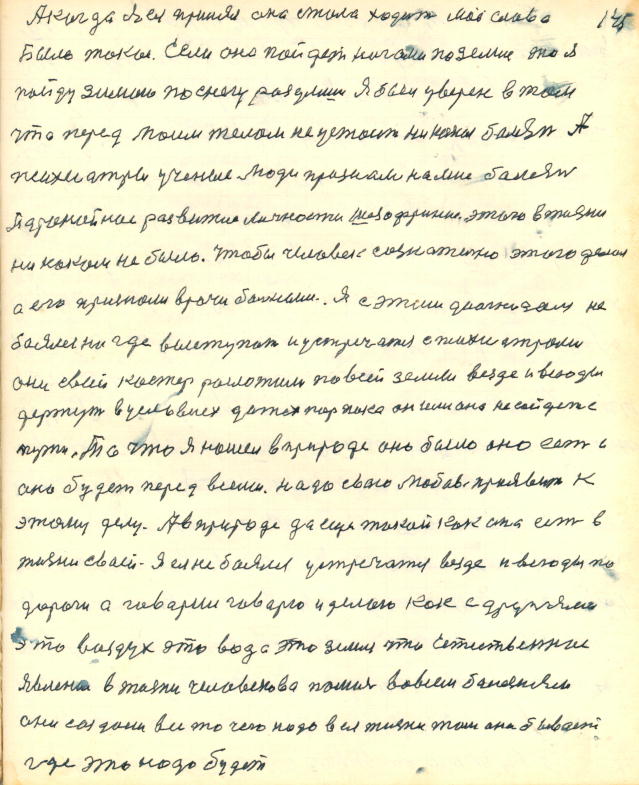 145
А когда я ея принял она стала ходит мое слово
было такое. Если она пойдет ногами по земле то я
пойду зимою по снегу разувши Я был уверен в том
что перед моим телом не устоит никакая болезн А
психиатры ученые люди признали на мне болезн
Параноиное развитие личности Шизофрения. этого в жизни
ни каком не было. Чтобы человек сознательно этого делал
а его признали врачи больным. Я с этим диагнозом не
боялся ни где выступат и устречатся с психиатрами
они свой костер разложили по всей земли везде и всюды
держут в условиях до тех пор пока он или она не сойдет с
пути. То что я нашел в природе оно было оно ест и
оно будет перед всеми. надо свою любов приявит к
этому делу. А в природе да еще такой как она ест в
жизни своей. Я ея не боялся устречатся везде и всюды по
дороги а говарил говарю и делаю как с друзьями
это воздух это вода это земля это естественные
явления в жизни человекова помня во всем болезням
они создали все то чего надо в ея жизни там она бывает
где это надо будет